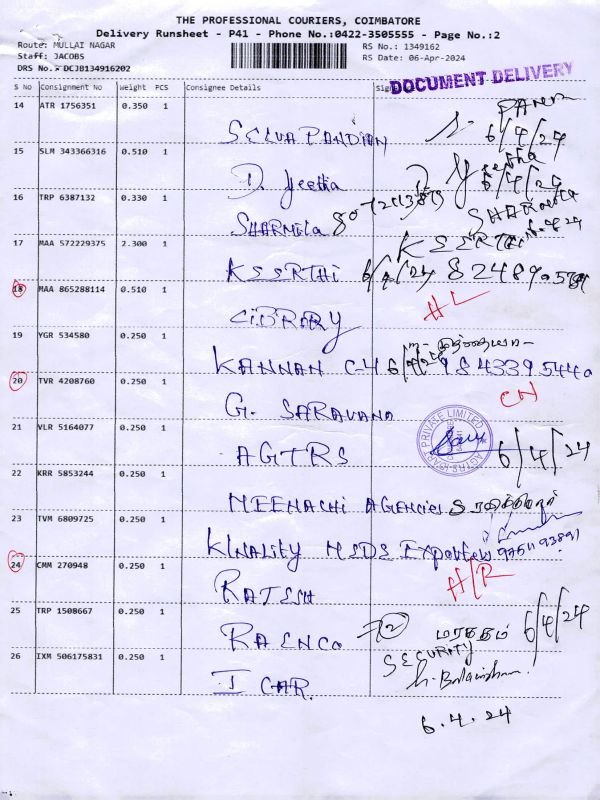 THE PROFESSIONAL COURIERS, COIMBATORE
Delivery Runsheet - P41 - Phone No.:0422-3505555 - Page No.:2
Route: MULLAI NAGAR
Staff: JACOBS
DRS No.: DCJB134916202
RS No.: 1349162
RS Date: 06-Apr-2024
DOCUMENT DELIVERY
S No Consignment No Weight PCS Consignee Details
14 ATR 1756351 0.350 1
SELVA PANDIYAN 6/4/24
15 SLM 343366316 0.510 1
D. Jeetha
16 TRP 6387132 0.330 1
SHARMila
17 MAA 572229375 2.300 1
KSSRTHI
18 MAA 865288114 0.510 1 HL
LIBRARY
19 YGR 534580 0.250 1
KANNAN C-4 9843395440
20 TVR 4208760 0.250 1 CN
G. SARAVANA
21 VLR 5164077 0.250 1
AGTRS 6/4/24
22 KRR 5853244 0.250 1
MEENACHI AGENCIES
23 TVM 6809725 0.250 1
KINALITY
24 CMM 270948 0.250 1 H/R
RAJESH
25 TRP 1508667 0.250 1
RAENCO 2 மரகதம் 6/4/24
SECURITY
26 IXM 506175831 0.250 1
I CAR.
6.4.24